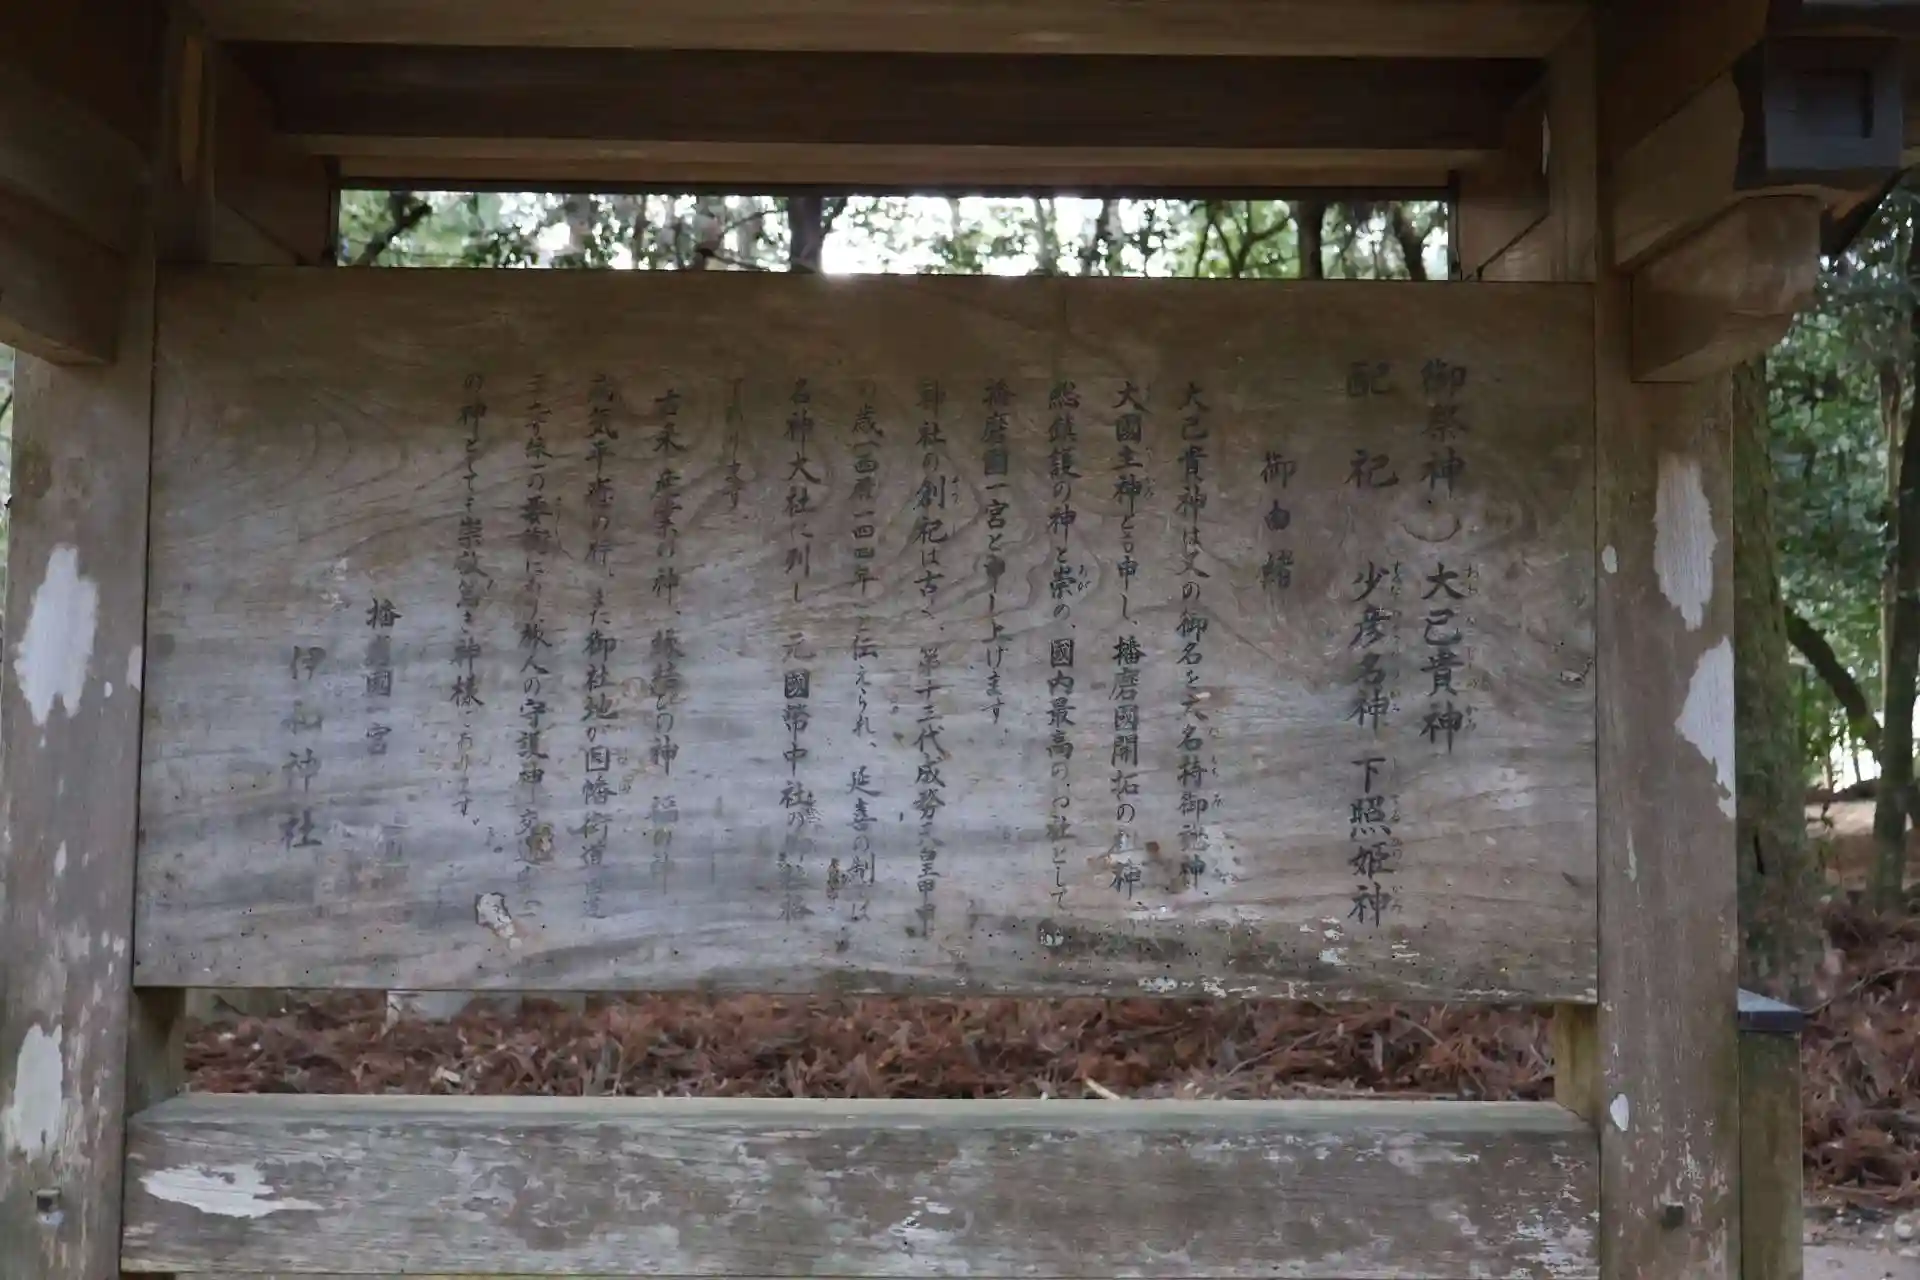 御祭神 大己貴神
配祀 少彦名神 下照姫神
御由緒
大己貴神は又の御名を大名持御魂神、
大國主神とも申し、播磨國開拓の 神、
総鎮護の神と崇め、國内最高の お社として
播磨國一宮と申し上げます。
神社の創祀は古く、第十三代成務天皇甲申
の歳(西暦一四四年)と伝えられ、延喜の制では
名神大社に列し 元國幣中社の御社格
であります。
古来 産業の神、縁結びの神 福の神
病気平癒の 、また御社地が因幡街道
の要衝にあり旅人の守護神 交通
の神としても崇敬篤き神様であります。
播磨國一宮
伊和神社